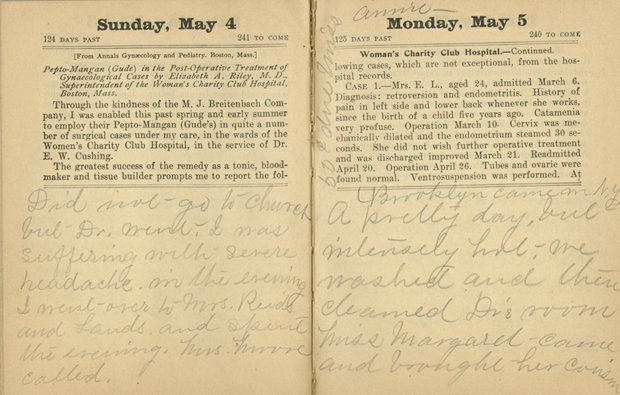 Sunday, May 4
124 DAYS PAST 241 TO COME
[From Annals Gynæcology and Pediatry. Boston, Mass.]
Pepto-Mangan (Gude) in the Post-Operative Treatment of
Gynaecological Cases by Elizabeth A. Riley, M. D.,
Superintendent of the Woman's Charity Club Hospital,
Boston, Mass.
Through the kindness of the M. J. Breitenbach Com-
pany, I was enabled this past spring and early summer
to employ their Pepto-Mangan (Gude's) in quite a num-
ber of surgical cases under my care, in the wards of the
Women's Charity Club Hospital, in the service of Dr.
E. W. Cushing.
The greatest success of the remedy as a tonic, blood-
maker and tissue builder prompts me to report the fol-
Did not go to church
but Dr. went. I was
suffering with severe
headache. in the evening
I went over to Mrs. Reeds
and Lands. and spent
the evening. Mrs. Moore
called.
Annie
Monday, May 5
125 DAYS PAST 240 TO COME
Woman's Charity Club Hospital.—Continued.
lowing cases, which are not exceptional, from the hos-
pital records.
CASE 1.—Mrs. E. L., aged 24, admitted March 6.
Diagnosis: retroversion and endometritis. History of
pain in left side and lower back whenever she works,
since the birth of a child five years ago. Catamenia
very profuse. Operation March 10. Cervix was me-
chanically dilated and the endometrium steamed 30 se-
conds. She did not wish further operative treatment
and was discharged improved March 21. Readmitted
April 20. Operation April 26. Tubes and ovarie were
found normal. Ventrosuspension was performed. At
Brooklyn came in N.Y.
A pretty day, but
intensely hot. we
washed and then
cleaned Dr's room
Miss Margaret came
and brought her cousin